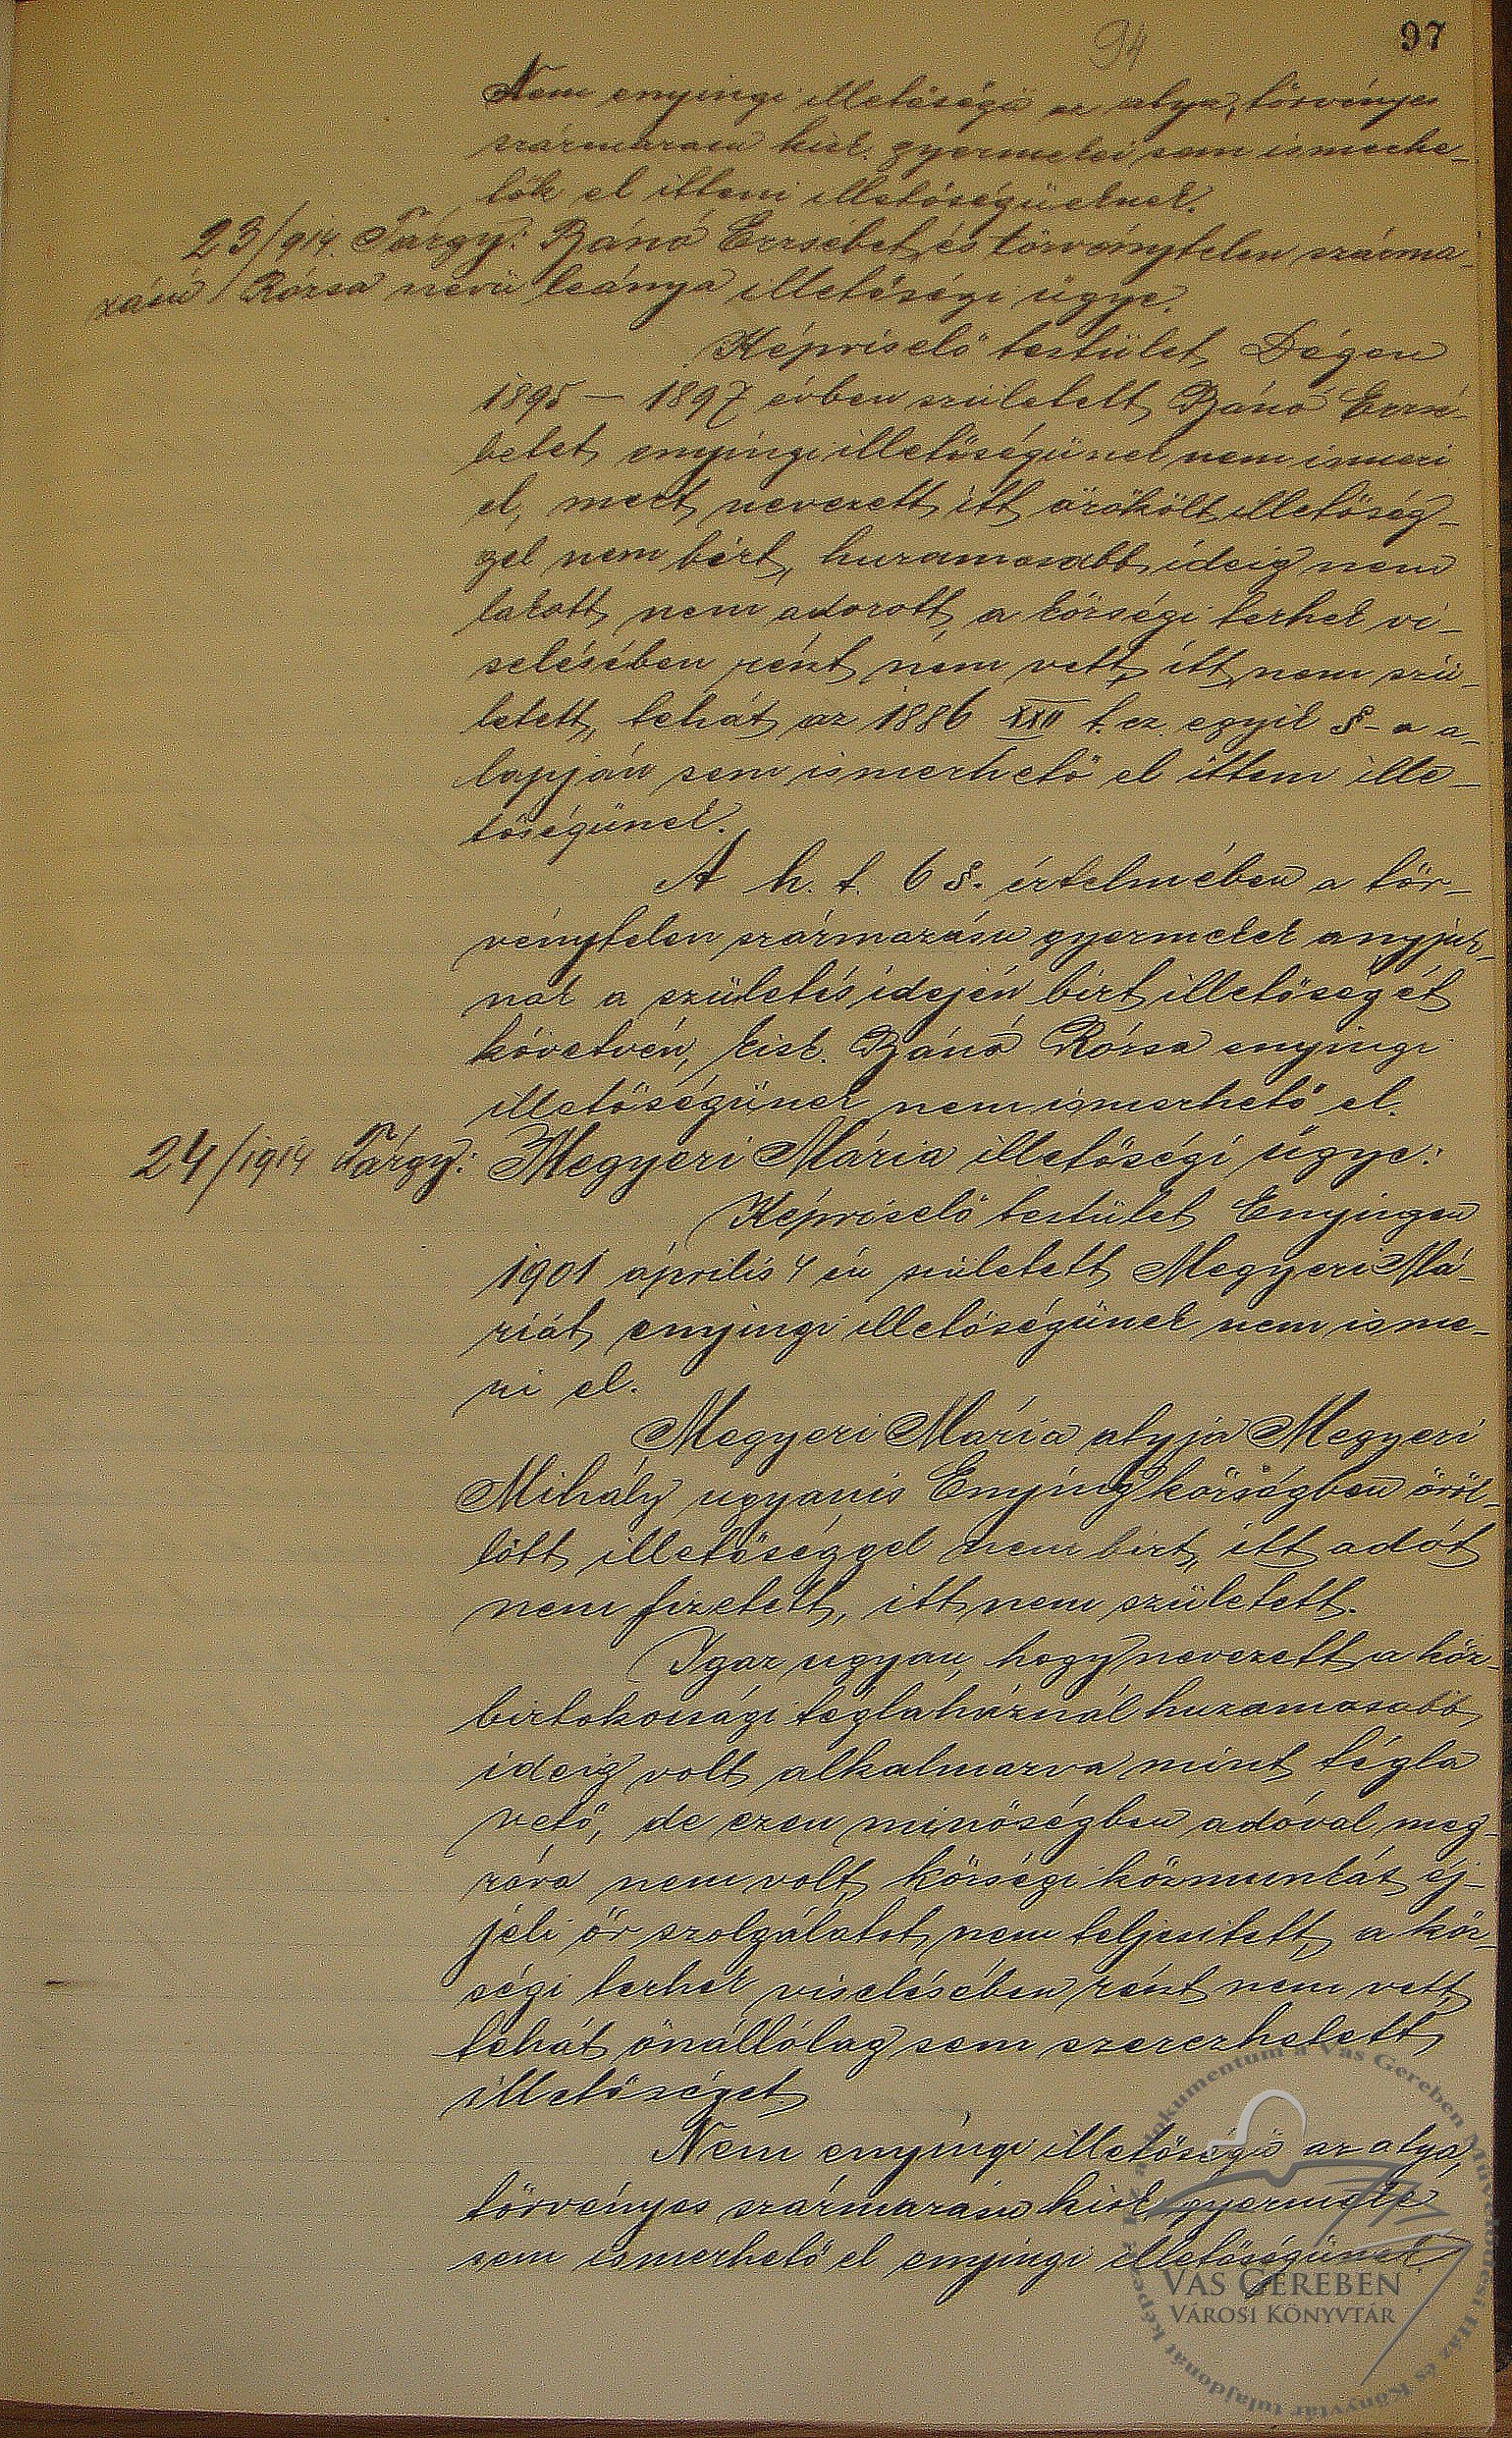 94 97
Nem enyingi illetőségü az atya, törvényes
származásu kisk. gyermekei sem ismerhe-
tők el itteni illetőségüeknek.
23/914. Tárgy: Bánó Erzsébet és törvénytelen szárma-
zásu Rózsa nevü leánya illetőségi ügye.
Képviselő testület, Dégen
1895 – 1897 évben született Bánó Erzsé-
betet enyingi illetőségünek nem ismeri
el, mert nevezett itt örökölt illetőség-
gel nem birt, huzamosabb ideig nem
lakott, nem adózott, a községi terhek vi-
selésében részt nem vett, itt nem szü-
letett, tehát az 1886 XXII t. cz. egyik §-a a-
lapján sem ismerhető el itteni ille-
tőségünek.
A h. t. 6 §. értelmében a tör-
vénytelen származásu gyermekek anyjuk-
nak a születés idején birt illetőségét
követvén, kisk. Bánó Rózsa enyingi
illetőségünek nem ismerhető el.
24/1914 Tárgy: Megyeri Mária illetőségi ügye:
Képviselő testület Enyingen
1901 április 4 én született Megyeri Má-
riát enyingi illetőségünek nem isme-
ri el.
Megyeri Mária atyja Megyeri
Mihály ugyanis Enying községben örök-
lött illetőséggel nem birt, itt adót
nem fizetett, itt nem született.
Igaz ugyan, hogy nevezett a köz-
birtokossági téglaháznál huzamosabb
ideig volt alkalmazva mint tégla
vető, de ezen minőségben adóval meg-
róva nem volt, községi közmunkát éj-
jeli őr szolgálatot nem teljesitett, a köz-
ségi terhek viselésében részt nem vett,
tehát önállólag sem szerezhetett
illetőséget.
Nem enyingi illetőségü az atya,
törvényes származásu kisk. gyermeke
sem ismerhető el enyingi illetőségünek.
Ez a dokumentum a Vas Gereben Művelődési Ház és Könyvtár tulajdonát képezi.
VAS GEREBEN
VÁROSI KÖNYVTÁR